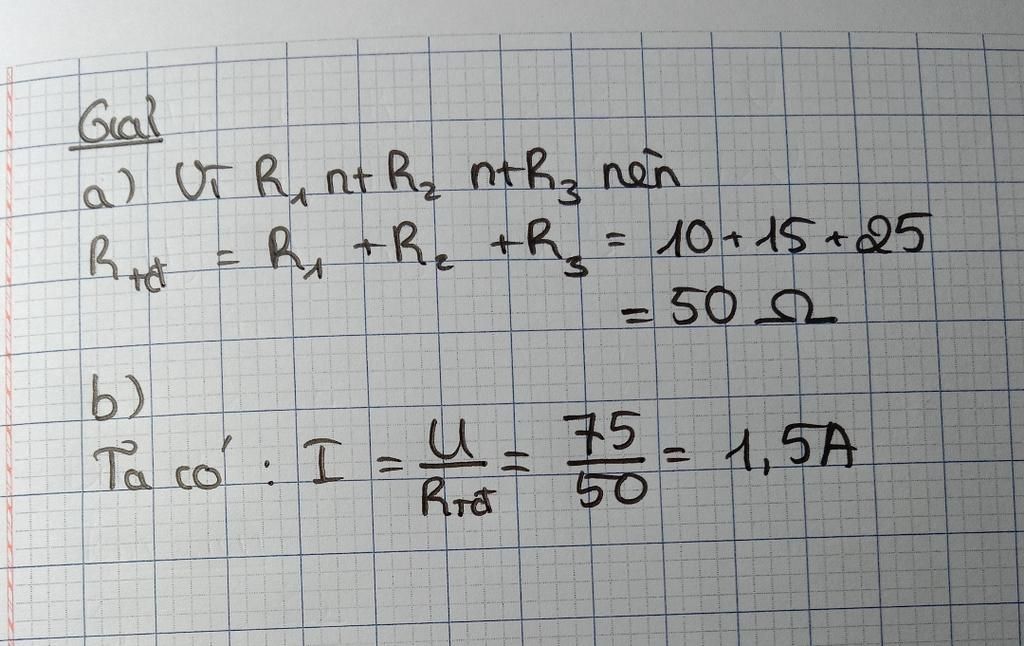 Giải
a) Vì R₁ nt R₂ nt R₃ nên
Rtđ = R₁ + R₂ + R₃ = 10 + 15 + 25
= 50 Ω
b)
Ta có : I = U/Rtđ = 75/50 = 1,5A